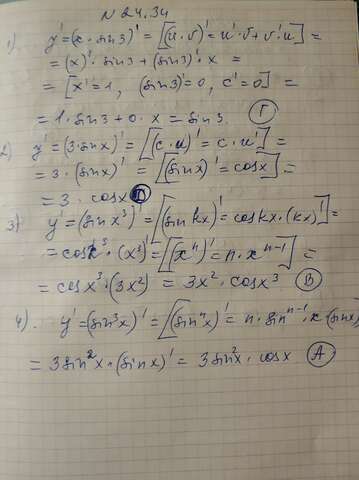 № 24.34
1) y' = (x · sin3)' = [(u · v)' = u' · v + v' · u] =
= (x)' · sin3 + (sin3)' · x =
= [x' = 1, (sin3)' = 0, c' = 0] =
= 1 · sin3 + 0 · x = sin3. Г
2) y' = (3 · sinx)' = [(c · u)' = c · u'] =
= 3 · (sinx)' = [(sinx)' = cosx] =
= 3 · cosx Д
3) y' = (sin x³)' = [(sin kx)' = cos kx · (kx)'] =
= cos x³ · (x³)' = [(xⁿ)' = n · xⁿ⁻¹] =
= cos x³ · (3x²) = 3x² · cos x³ В
4) y' = (sin³x)' = [(sinⁿx)' = n · sinⁿ⁻¹ · x · (sinx)
= 3sin²x · (sinx)' = 3sin²x · cosx А